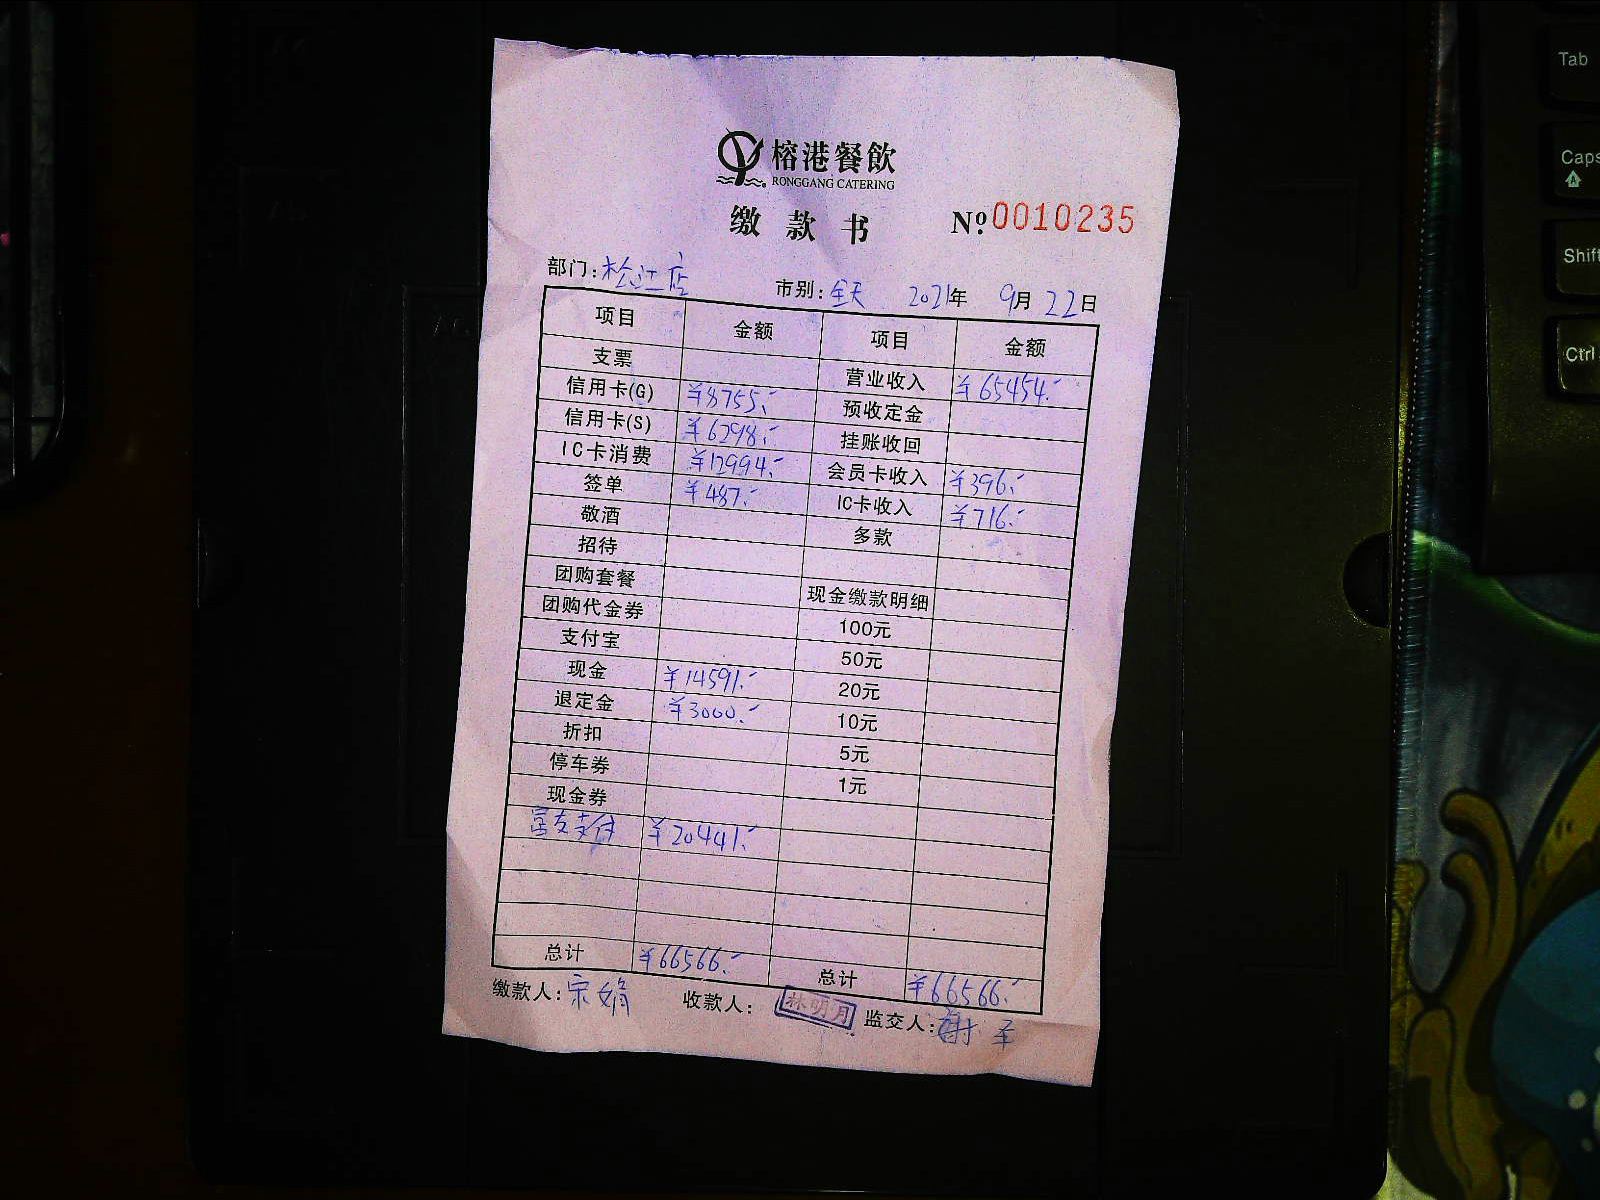 榕港餐飲
RONGGANG CATERING
缴款书 №0010235
部门:松江店 市别:全天 2021年 9月 22日
项目 金额 项目 金额
支票 营业收入 ¥65454.-
信用卡(G) ¥8755.- 预收定金
信用卡(S) ¥6298.- 挂账收回
IC卡消费 ¥12994.- 会员卡收入 ¥396.-
签单 ¥487.- IC卡收入 ¥716.-
敬酒 多款
招待
团购套餐 现金缴款明细
团购代金券 100元
支付宝 50元
现金 ¥14591.- 20元
退定金 ¥3000.- 10元
折扣 5元
停车券 1元
现金券
富友支付 ¥20441.-
总计 ¥66566.- 总计 ¥66566.-
缴款人:宋娟 收款人: 林明月 监交人:谢
Tab
Caps
Shift
Ctrl